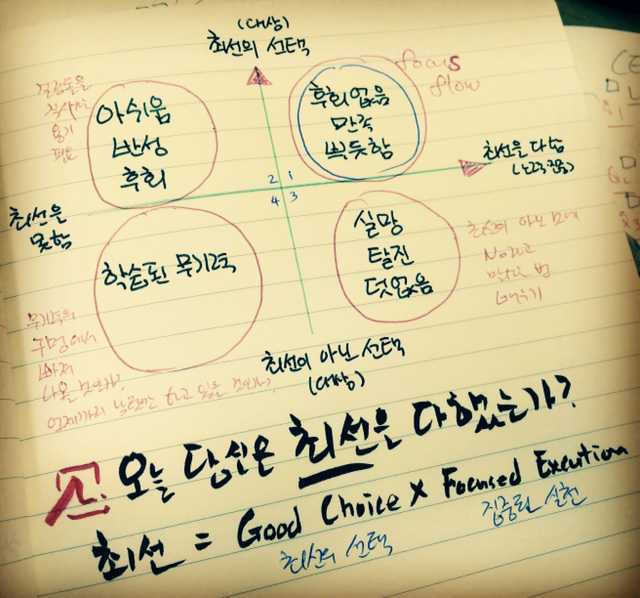 (대상)
최선의 선택
focus
flow
결과물을
직시할
용기
필요
아쉬움
반성
후회
후회없음
만족
뿌듯함
최선을 다함
2 1
4 3
최선을
못함
학습된 무기력
실망
탈진
덧없음
최선이 아닌 것에
No라고
말하는 법
배우기
무기력의
구멍에서
빠져
나올
최선이 아닌 선택
(대상)
오늘 당신은 최선을 다했는가?
최선 = Good Choice × Focused Execution
최선의 선택
집중된 실천